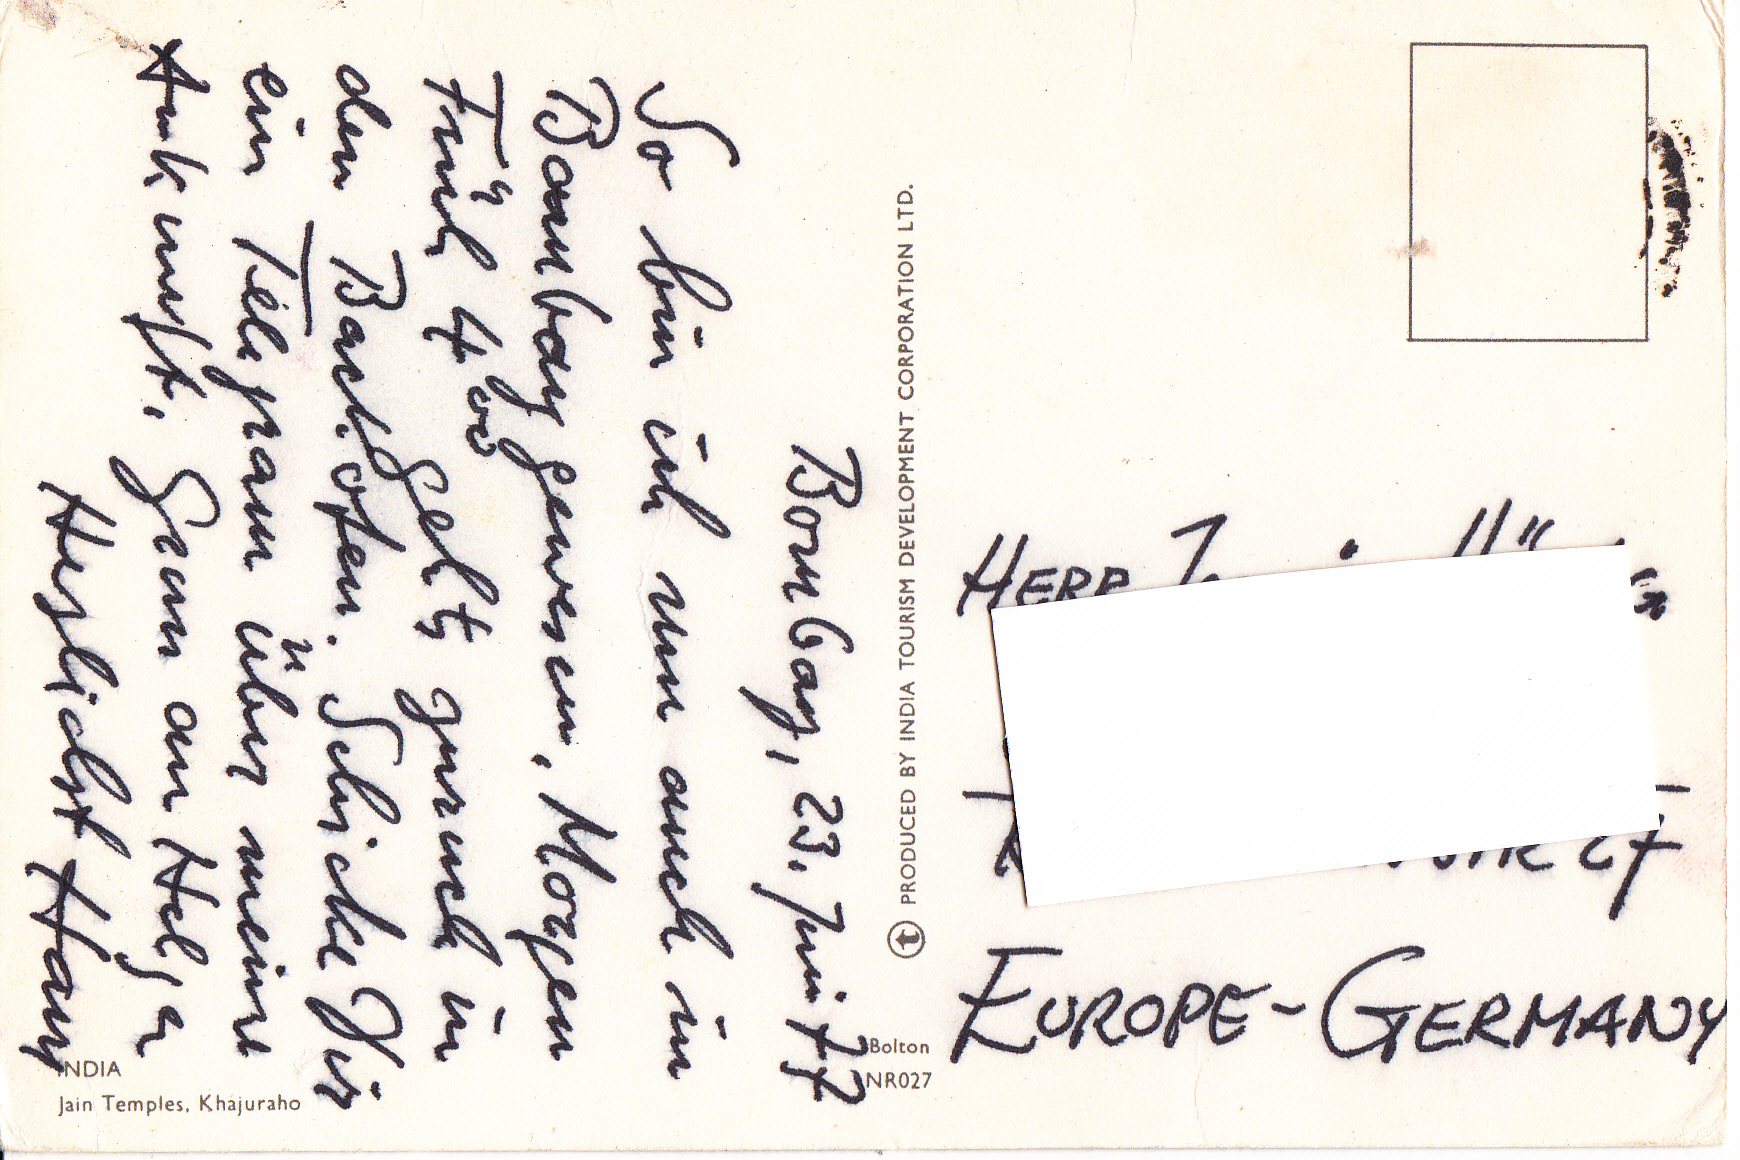 Bombay, 23. Juni 77
So bin ich nun auch in
Bombay gewesen, Morgen
Früh 4 00 geht's zurück in
den Backofen. Schicke Dir
ein Telegram über meine
Ankunft, Gruss an Helga
Herzlichst Hans
PRODUCED BY INDIA TOURISM DEVELOPMENT CORPORATION LTD.
HERR
EUROPE-GERMANY
Bolton
NR027
INDIA
Jain Temples, Khajuraho